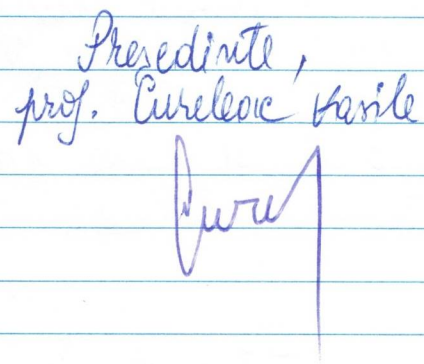 Președinte,
prof. Cureleac Vasile